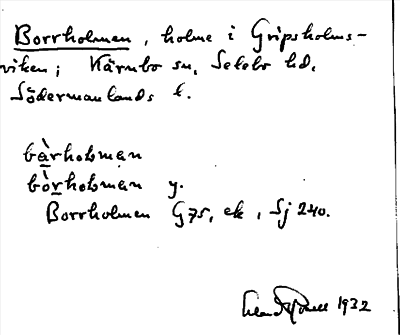 Borrholmen, holme i Gripsholms-
viken; Kärnbo sn, Selebo hd,
Södermanlands l.
bàrhoɫman
bòrhoɫman y.
Borrholmen G75, ek, Sj 240.
1932